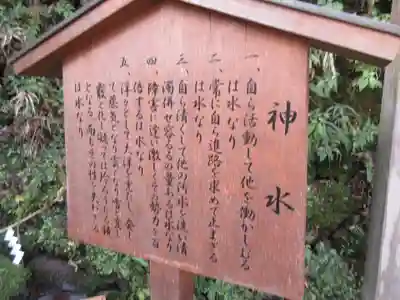 神水
一、自ら活動して他を働かしむる
は水なり
二、常に自ら進路を求めて止まざる
は水なり
三、自ら清くして他の汚水を洗い清
濁併せ容るるの量あるは水なり
四、障害に逢い激しくその勢力を百
倍するは水なり
五、洋々として大洋を充たし、発し
て蒸気となり雲となり雪と変じ
霰と化し凝っては玲瓏たる鏡
となる 而もその性を失わざる
は水なり